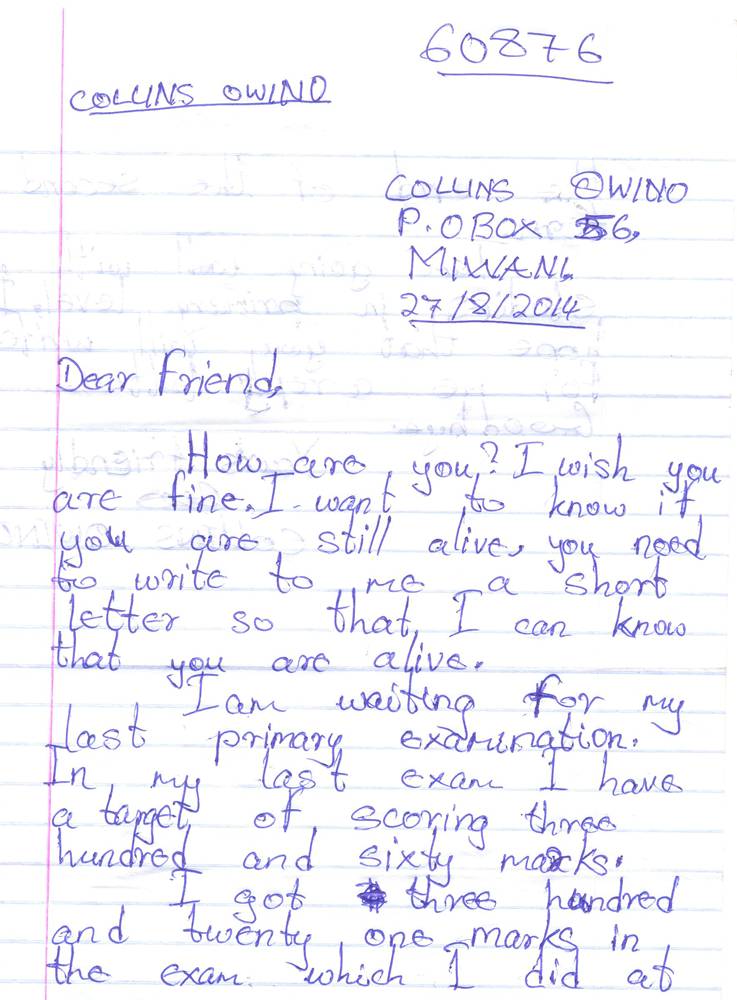 60876
COLLINS OWINO
COLLINS OWINO
P.O BOX 56,
MIWANI.
27/8/2014
Dear friend,
How are you? I wish you
are fine. I want to know if
you are still alive, you need
to write to me a short
letter so that I can know
that you are alive.
I am waiting for my
last primary examination.
In my last exam I have
a target of scoring three
hundred and sixty marks.
I got three hundred
and twenty one marks in
the exam which I did at